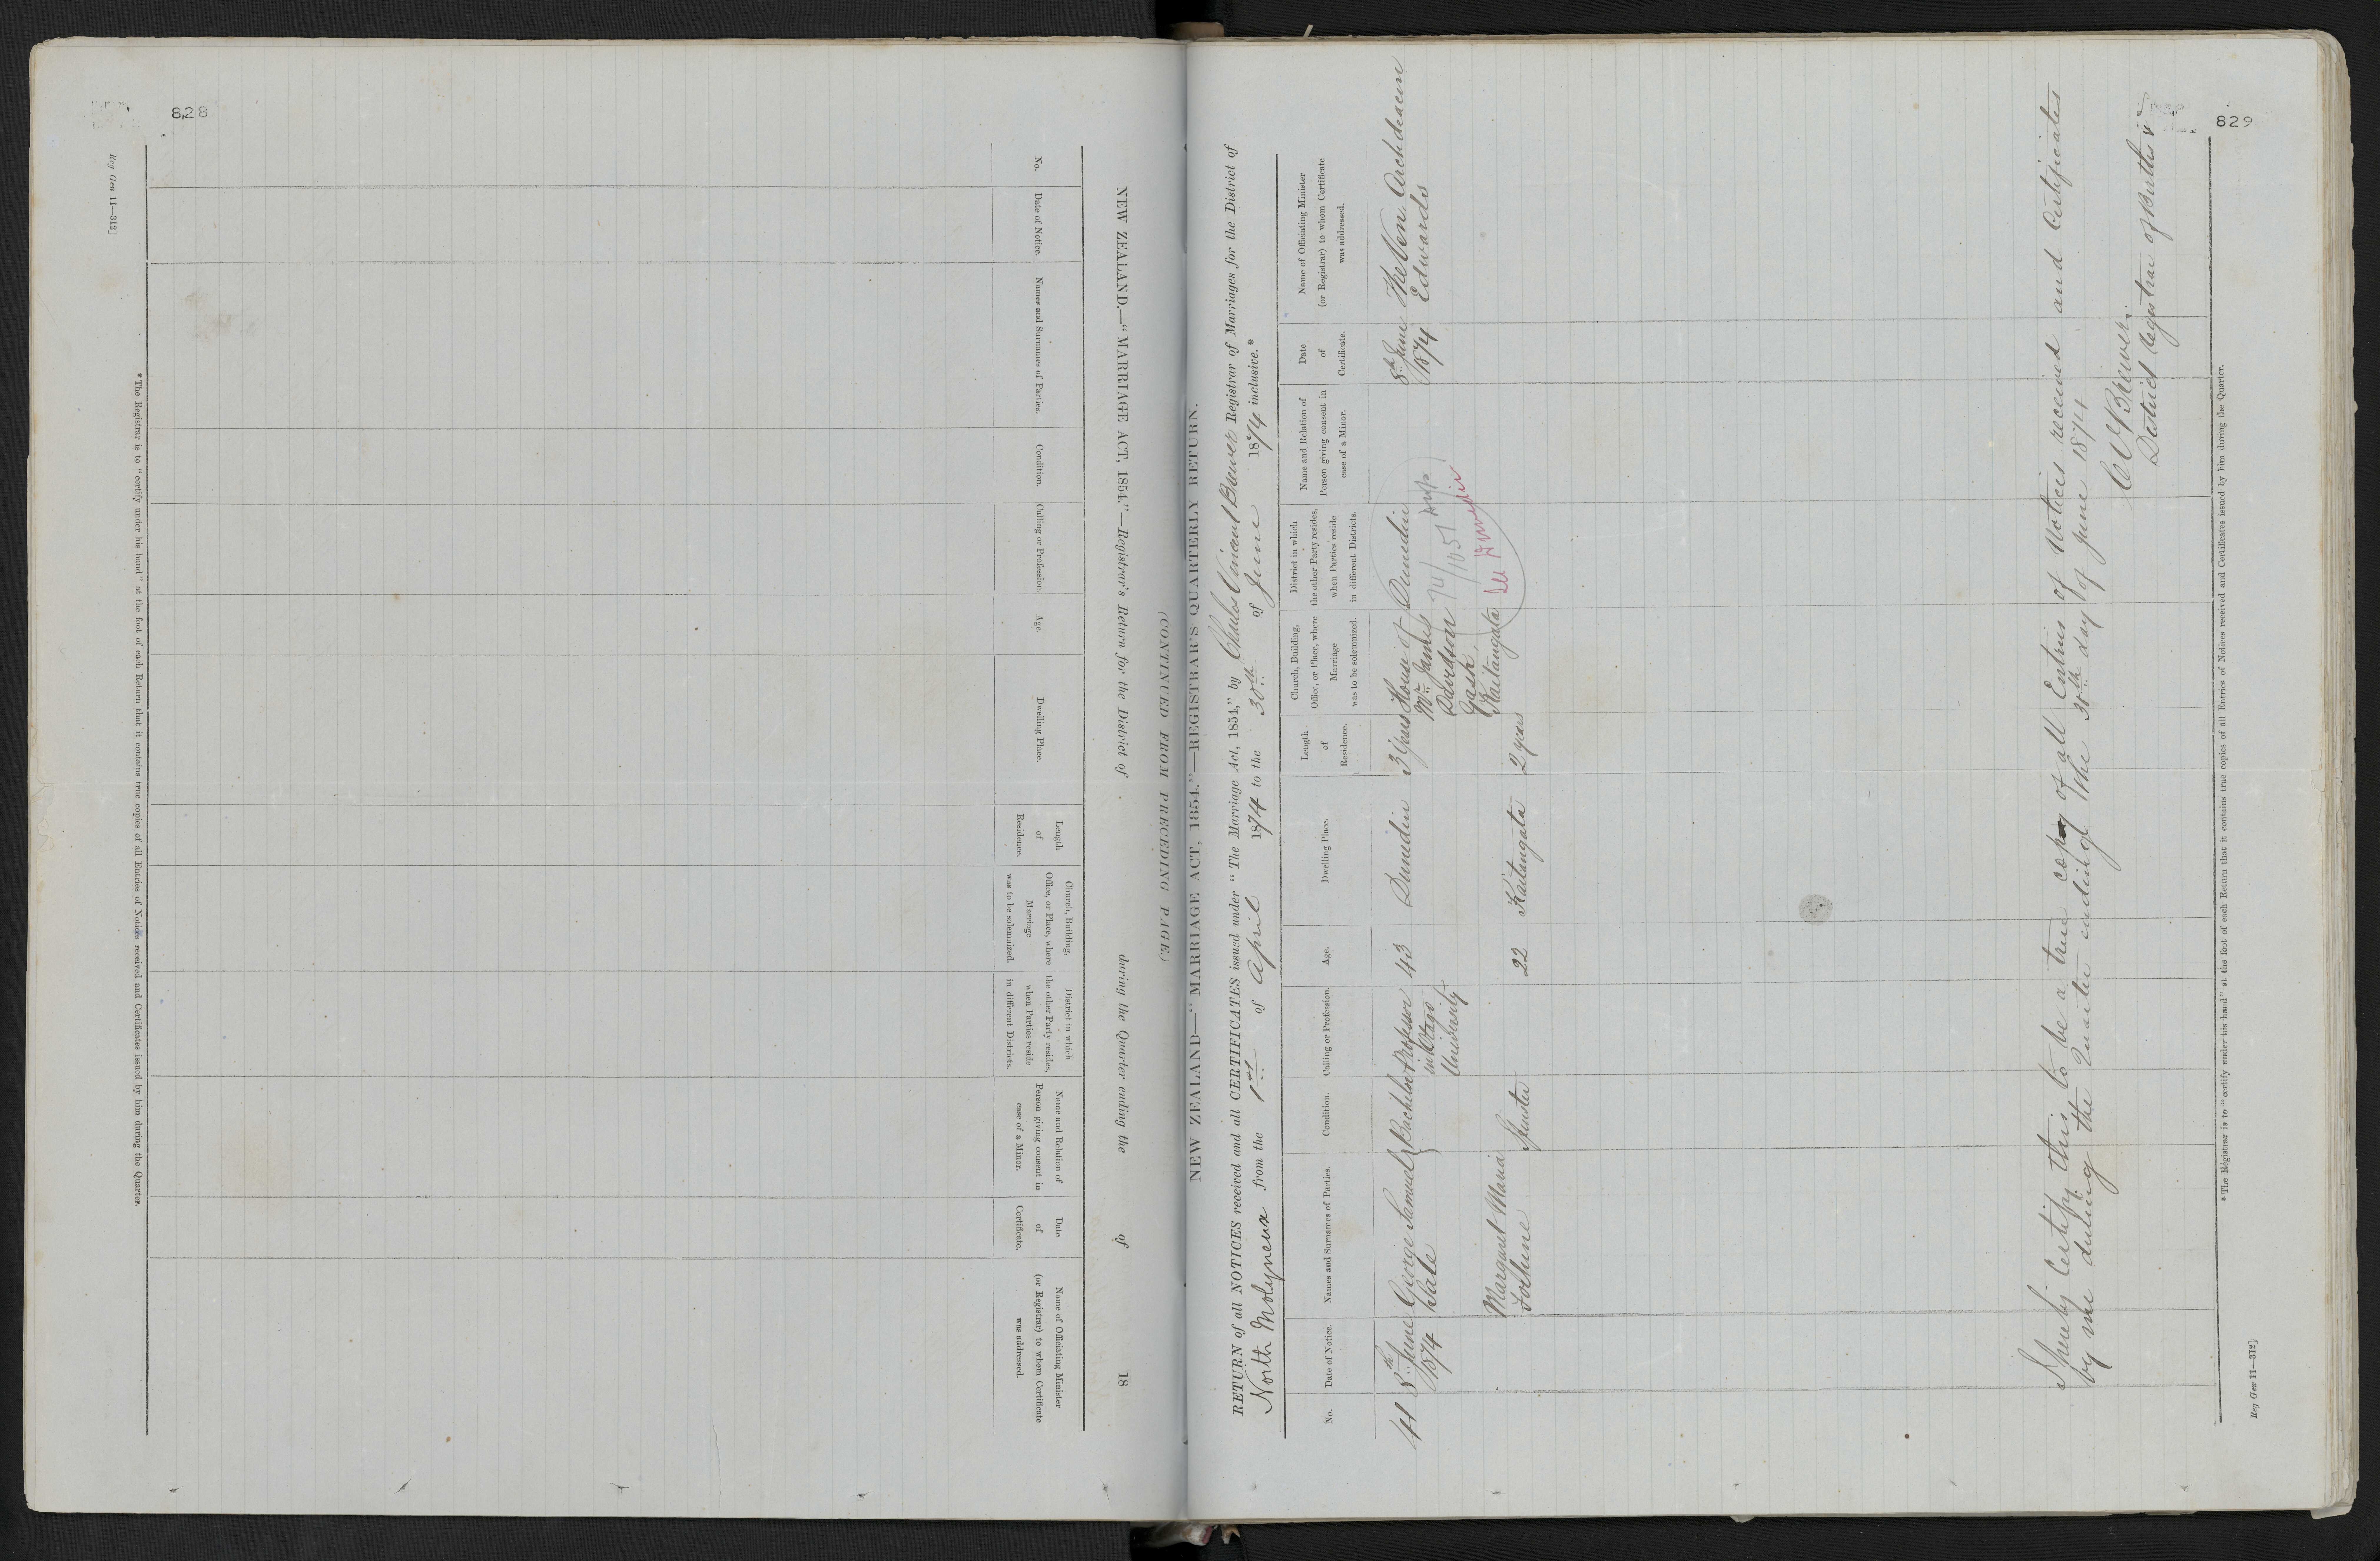 828
NEW ZEALAND.—"MARRIAGE ACT, 1854."—Registrar's Return for the District of during the Quarter ending the of 18
(CONTINUED FROM PRECEDING PAGE.)
No.
Date of Notice.
Names and Surnames of Parties.
Condition.
Calling or Profession.
Age.
Dwelling Place.
Length
of
Residence.
Church, Building,
Office, or Place, where
Marriage
was to be solemnized.
District in which
the other Party resides,
when Parties reside
in different Districts.
Name and Relation of
Person giving consent in
case of a Minor.
Date
of
Certificate.
Name of Officiating Minister
(or Registrar) to whom Certificate
was addressed.
* The Registrar is to "certify under his hand" at the foot of each Return that it contains true copies of all Entries of Notices received and Certificates issued by him during the Quarter.
Reg Gen 11—312]
829
NEW ZEALAND—"MARRIAGE ACT, 1854."—REGISTRAR'S QUARTERLY RETURN.
RETURN of all NOTICES received and all CERTIFICATES issued under "The Marriage Act, 1854," by Charles Vincent Brewer Registrar of Marriages for the District of
North Molyneux from the 1st of April 1874 to the 30th of June 1874 inclusive.*
No.
Date of Notice.
Names and Surnames of Parties.
Condition.
Calling or Profession.
Age.
Dwelling Place.
Length
of
Residence.
Church, Building,
Office, or Place, where
Marriage
was to be solemnized.
District in which
the other Party resides,
when Parties reside
in different Districts.
Name and Relation of
Person giving consent in
case of a Minor.
Date
of
Certificate.
Name of Officiating Minister
(or Registrar) to whom Certificate
was addressed.
8th June
1874
George Samuel
Sale
Bachelor
Professor
in Otago
University
43
Dunedin
3 years
House of
Mr James
Davidson
Kaitangata
Dunedin
74/1051
see Dunedin
8th June
1874
The Ven. Archdeacon
Edwards
Margaret Maria
Fothune
Spinster
22
Kaitangata
2 years
I hereby Certify this to be a true copy of all Entries of Notices received and Certificates
by me during the Quarter ending the 30th day of June 1874
C V Brewer.
District Registrar of Births &c
* The Registrar is to "certify under his hand" at the foot of each Return that it contains true copies of all Entries of Notices received and Certificates issued by him during the Quarter.
Reg Gen 11—312]